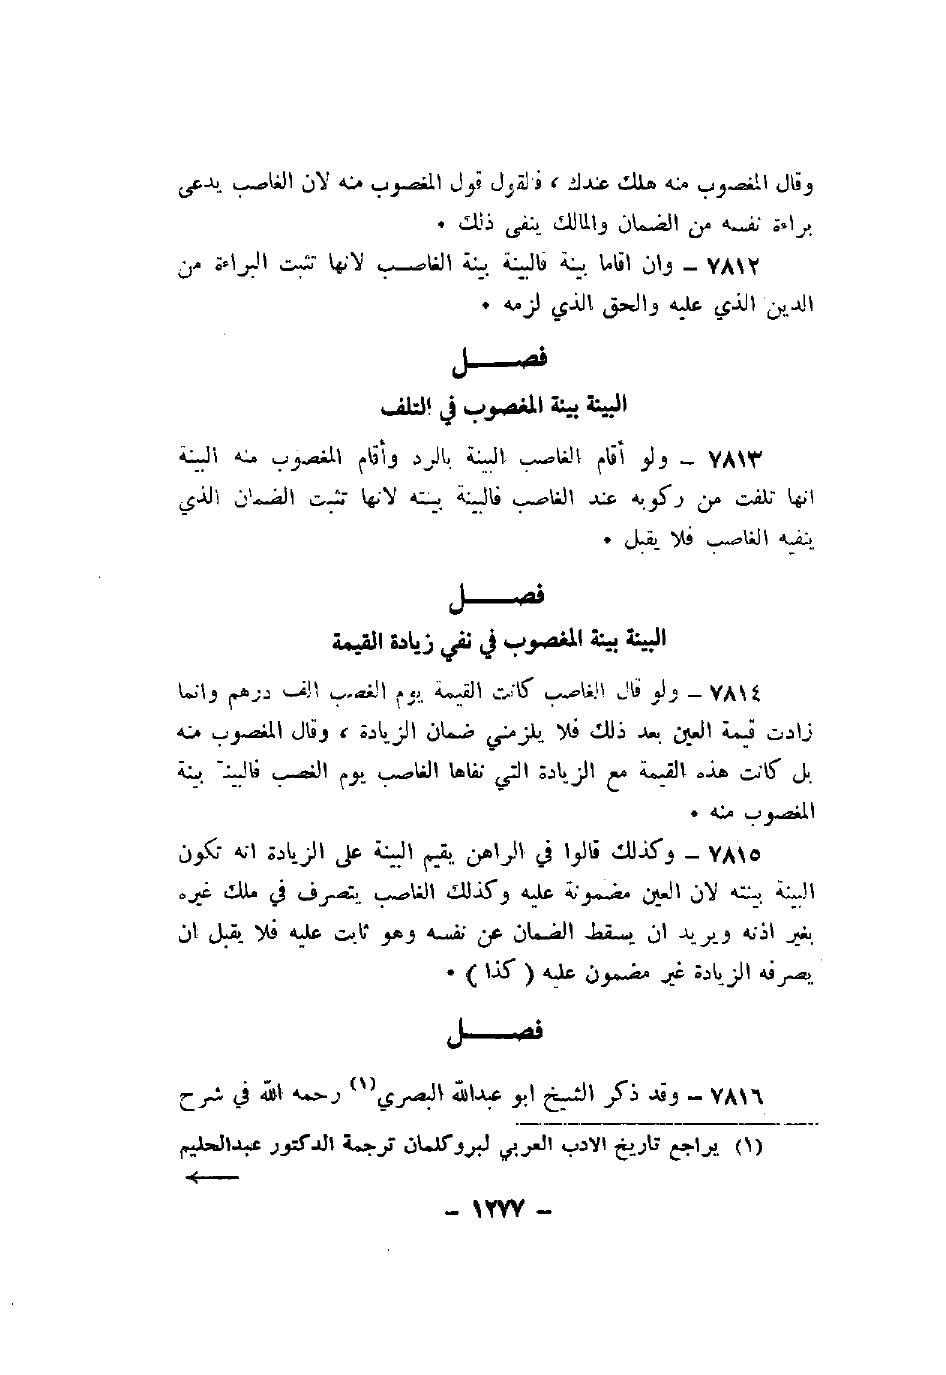 وقال المغصوب منه هلك عندك ، فالقول قول المغصوب منه لان الغاصب يدعى
براءة نفسه من الضمان والمالك ينفى ذلك .
٧٨١٢ – وان اقاما بينة فالبينة بينة الغاصب لانها تثبت البراءة من
الدين الذي عليه والحق الذي لزمه .
فصل
البينة بينة المغصوب في التلف
٧٨١٣ – ولو أقام الغاصب البينة بالرد وأقام المغصوب منه البينة
انها تلفت من ركوبه عند الغاصب فالبينة بينته لانها تثبت الضمان الذي
ينفيه الغاصب فلا يقبل .
فصل
البينة بينة المغصوب في نفي زيادة القيمة
٧٨١٤ – ولو قال الغاصب كانت القيمة يوم الغصب الف درهم وانما
زادت قيمة العين بعد ذلك فلا يلزمني ضمان الزيادة ، وقال المغصوب منه
بل كانت هذه القيمة مع الزيادة التي نفاها الغاصب يوم الغصب فالبينة بينة
المغصوب منه .
٧٨١٥ – وكذلك قالوا في الراهن يقيم البينة على الزيادة انه تكون
البينة بينته لان العين مضمونة عليه وكذلك الغاصب يتصرف في ملك غيره
بغير اذنه ويريد ان يسقط الضمان عن نفسه وهو ثابت عليه فلا يقبل ان
يصرفه الزيادة غير مضمون عليه ( كذا ) .
فصل
٧٨١٦ – وقد ذكر الشيخ ابو عبدالله البصري(١) رحمه الله في شرح
(١) يراجع تاريخ الادب العربي لبروكلمان ترجمة الدكتور عبدالحليم
– ١٢٧٧ –